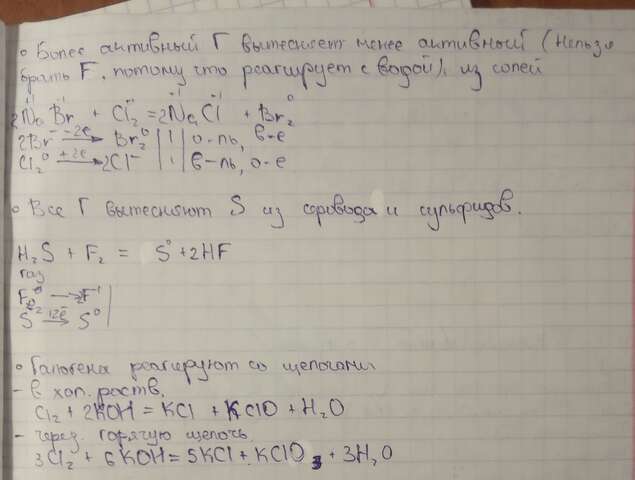 • Более активный Г вытесняет менее активный (нельзя
брать F, потому что реагирует с водой), из солей
+1 -1 0 +1 -1 0
2NaBr + Cl₂ = 2NaCl + Br₂
2Br⁻ -2e → Br₂⁰ | 1 | о-ль, в-е
Cl₂⁰ +2e → 2Cl⁻ | 1 | в-ль, о-е
• Все Г вытесняют S из серовода и сульфидов.
H₂S + F₂ = S⁰ + 2HF
газ
F₂⁰ → 2F⁻¹ |
S⁻² → S⁰
• Галогена реагируют со щелочами
- в хол. раств.
Cl₂ + 2KOH = KCl + KClO + H₂O
- через горячую щелочь
3Cl₂ + 6KOH = 5KCl + KClO₃ + 3H₂O